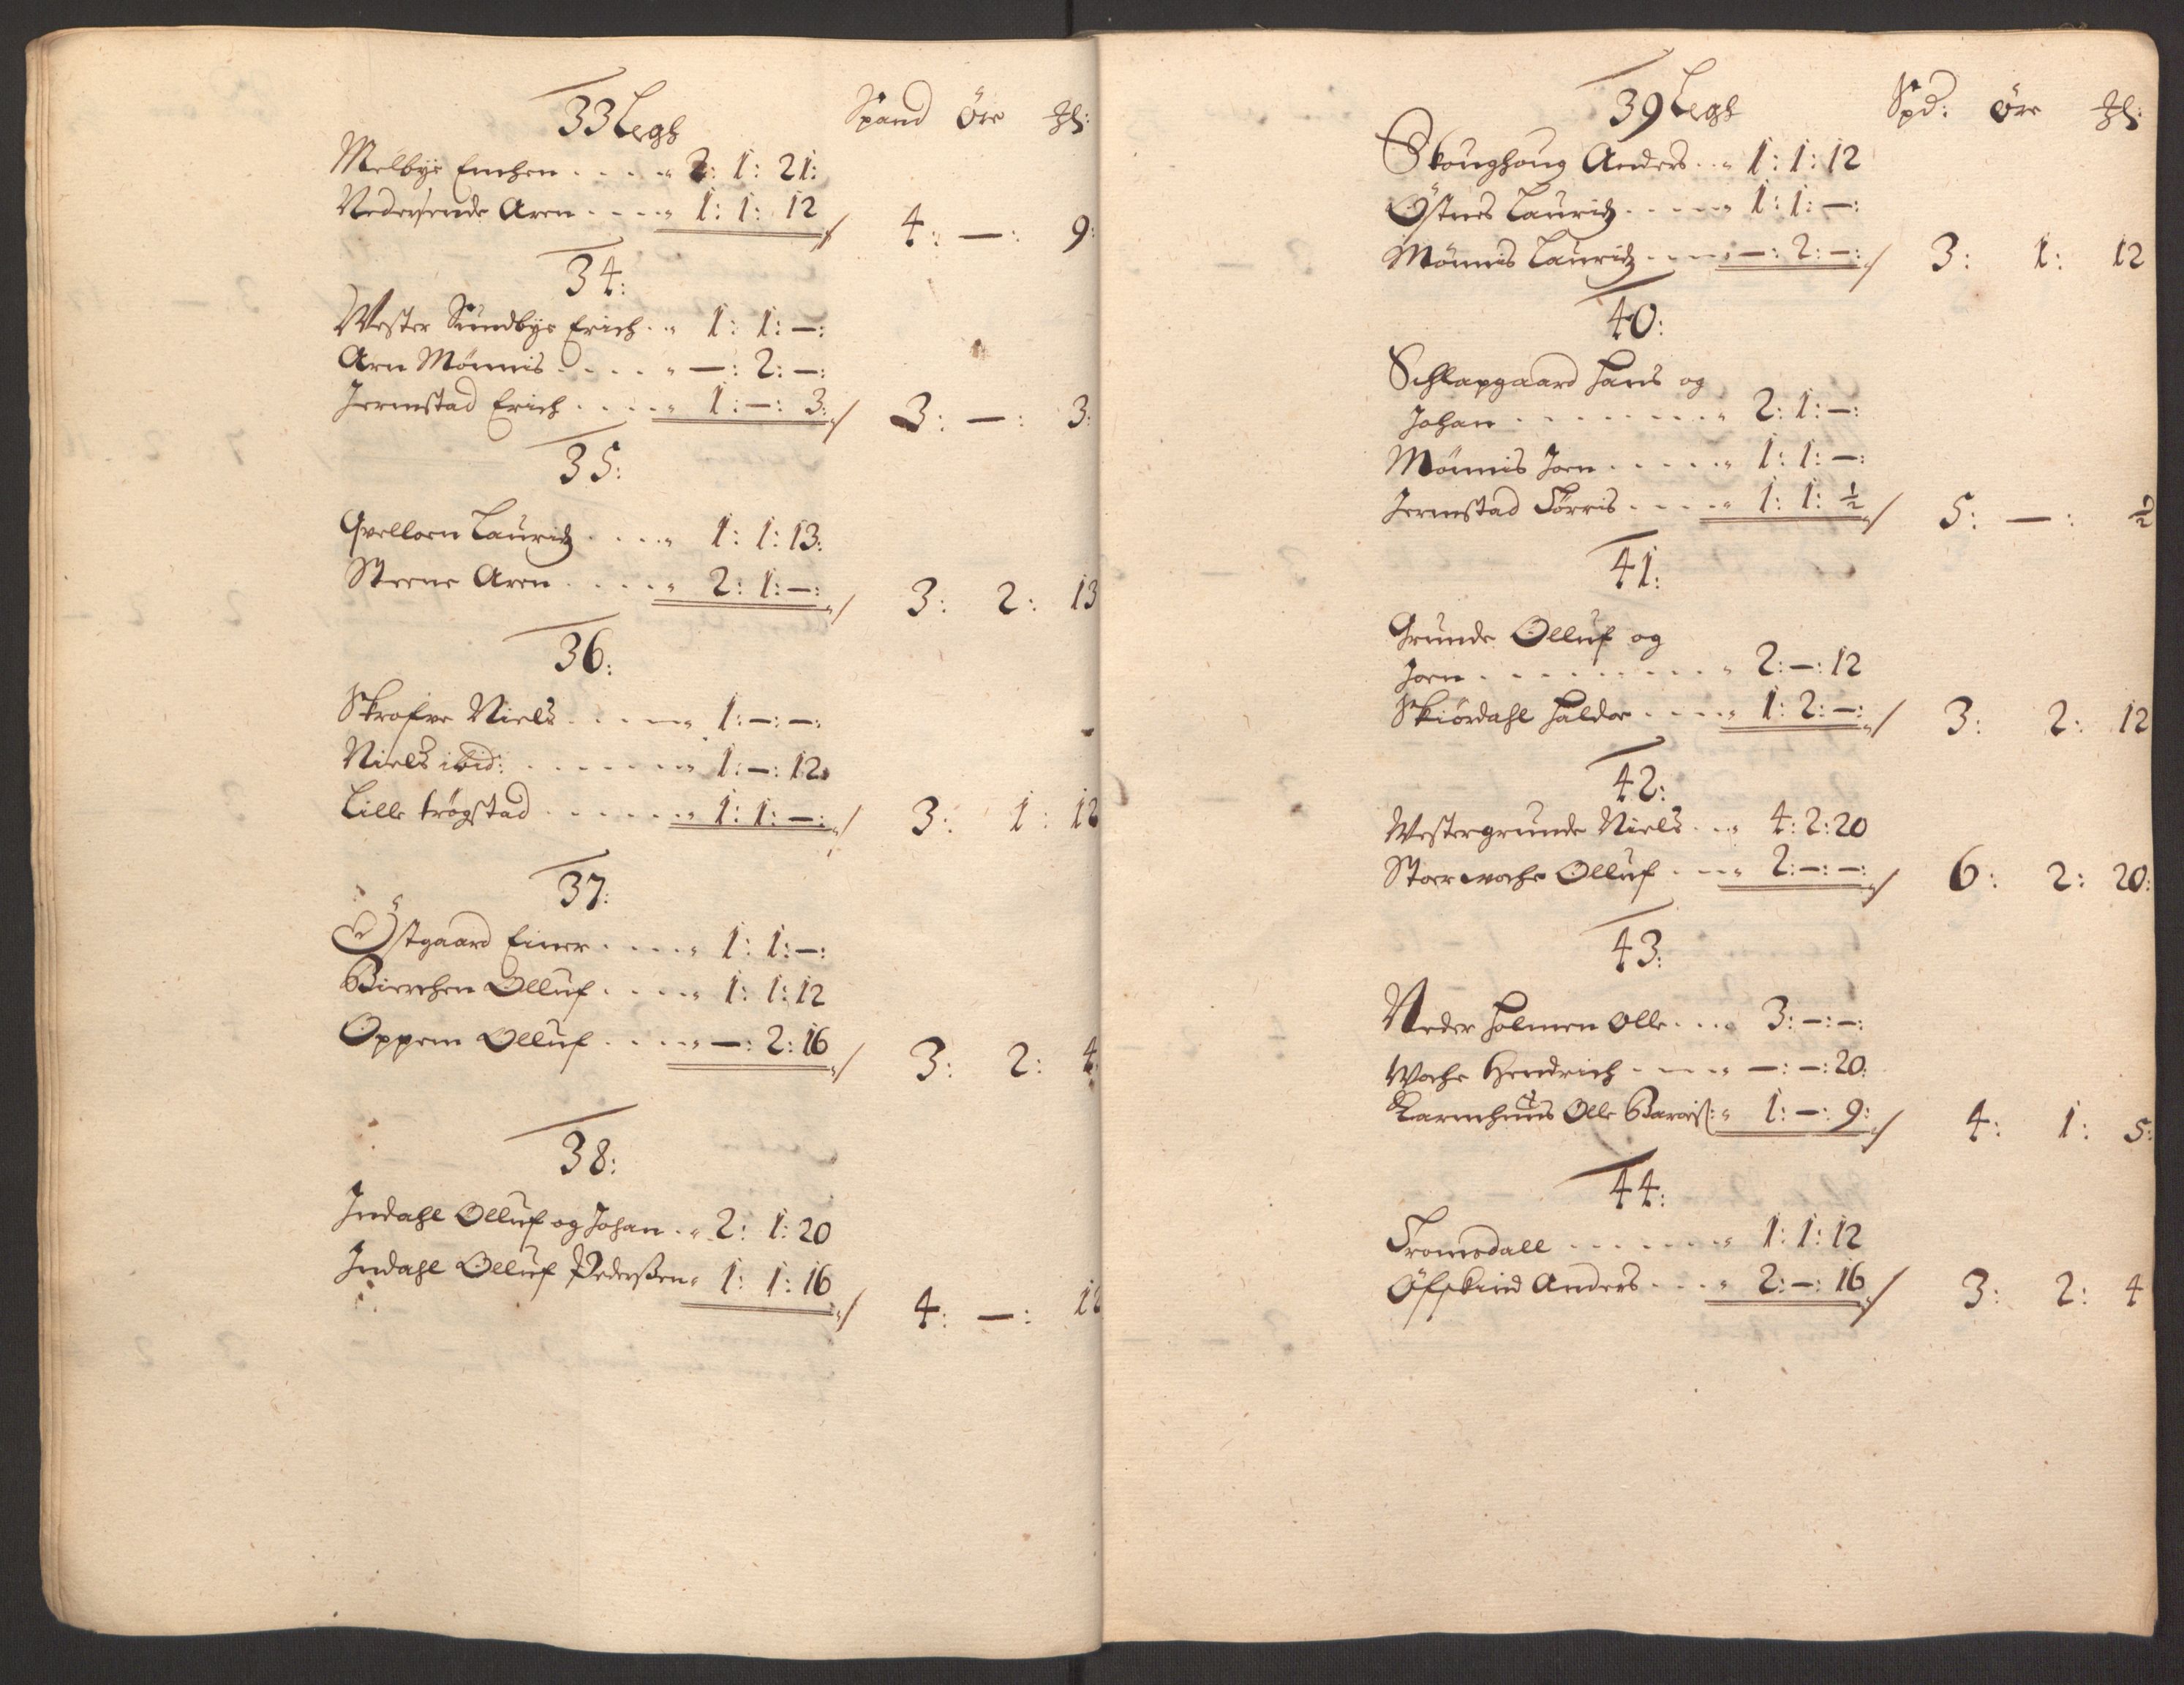 33 Legh Spand öre
Melbye Enchen . . . . 2: 1: 21:
Nedersende Aren . . . . 1: 1: 12 4: —: 9:
34:
Wester Sundbye Erich . . 1: 1: —:
Arn Mönnis . . . . —: 2: —:
Jermstad Erich . . . . 1: —: 3: 3: —: 3:
35:
Qvelloen Lauridz . . . . 1: 1: 13:
Steene Aren . . . . 2: 1: —: 3: 2: 13
36:
Skrofve Niels . . . . 1: —: —:
Niels ibid: . . . . . . 1: —: 12
Lille trögstad . . . . . . 1: 1: —: 3: 1: 12
37:
Östgaard Einer . . . . 1: 1: —:
Bierchen Olluf . . . . 1: 1: 12
Oppem Olluf . . . . —: 2: 16 3: 2: 4
38:
Indahl Olluf og Johan . . 2: 1: 20
Indahl Olluf Pederßen 1: 1: 16 4: —: 12
39 Legh Spd: öre
Skoughoug Anders . . 1: 1: 12
Östnes Lauridz . . . . 1: 1: —:
Mönnis Lauridz . . . . —: 2: —: 3: 1: 12
40:
Schlapgaard Hans og
Johan . . . . . . . . 2: 1: —:
Mönnis Joen . . . . . 1: 1: —:
Jermstad Törris . . . . 1: 1: ½ 5: —: ½
41:
Grunde Olluf og
Joen . . . . . . . . . 2: —: 12
Skiördahl Haldor . . . . 1: 2: —: 3: 2: 12
42:
Westergrunde Niels . . . 4: 2: 20
Stoer wohe Olluf . . . 2: —: —: 6: 2: 20:
43:
Neder Holmen Olle . . . 3: —: —:
Wohe Hendrich . . . . —: —: 20:
Karmhuus Olle 1: —: 9: 4: 1: 5:
44:
Tromsdall . . . . . . 1: 1: 12
Öfskind Anders . . . . 2: —: 16 3: 2: 4